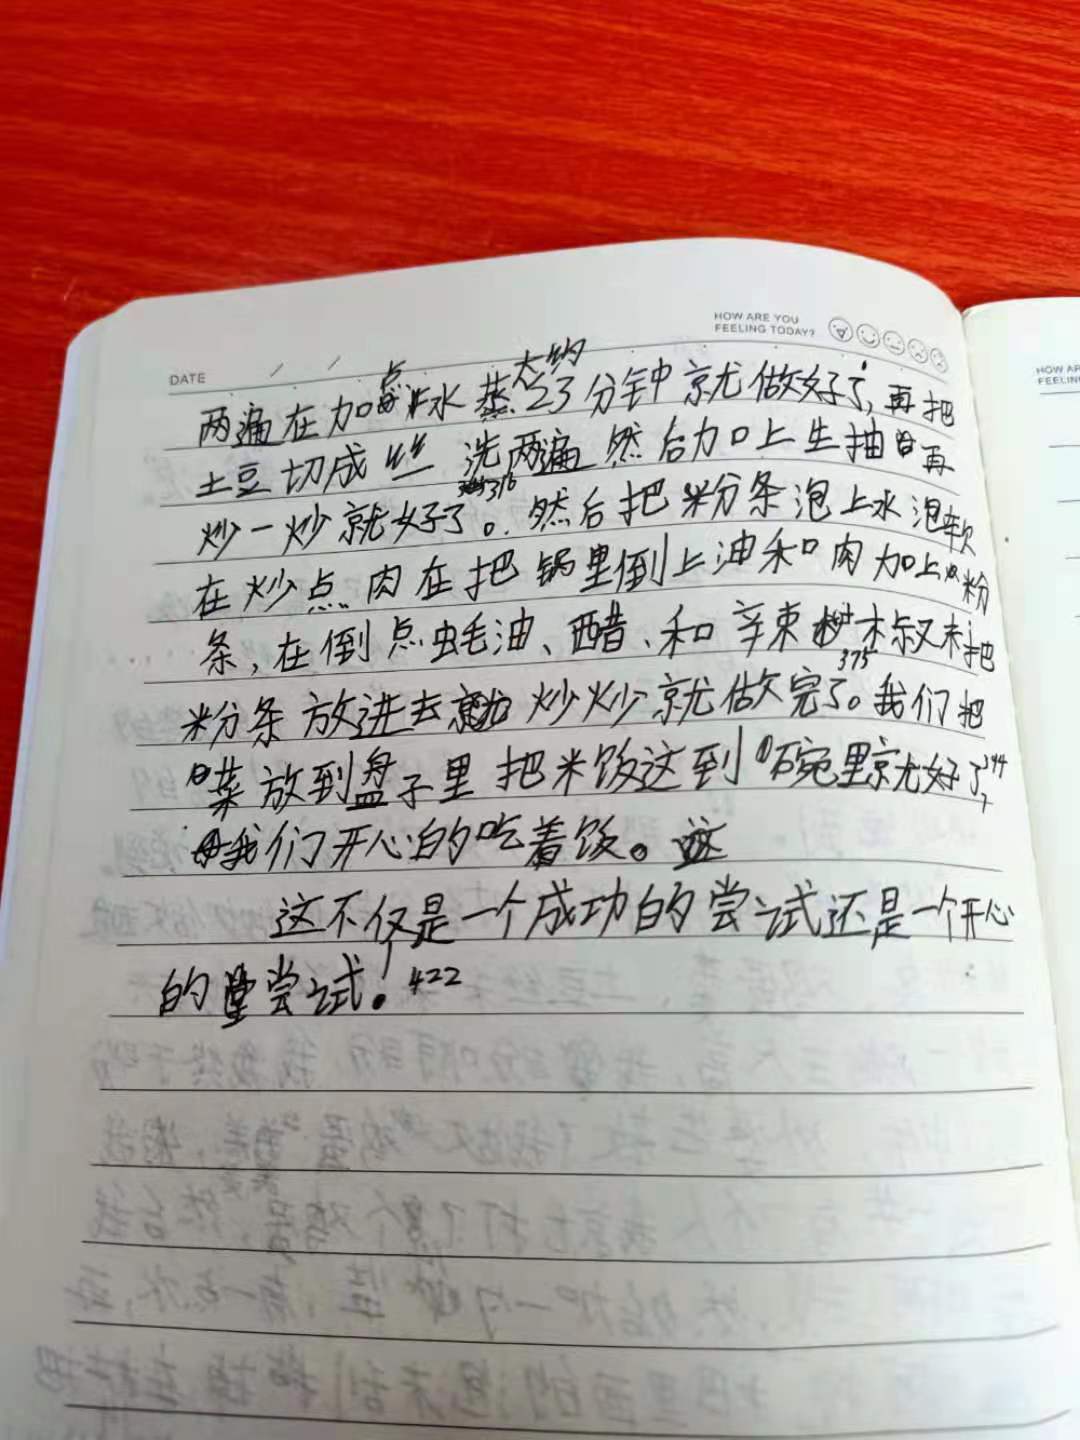 HOW ARE YOU
FEELING TODAY?
DATE / /
点 大约
两遍在加水蒸23分钟就做好了,再把
土豆切成丝 洗两遍 然后加上生抽再
316
炒一炒就好了。然后把粉条泡上水泡软
在炒点肉在把锅里倒上油和肉加上粉
条,在倒点蚝油、醋、和辛束椒把
375
粉条放进去炒炒就做完了。我们把
菜放到盘子里把米饭这到碗里就好了
我们开心的吃着饭。
这不仅是一个成功的尝试还是一个开心
的尝试!422
HOW AR
FEELIN